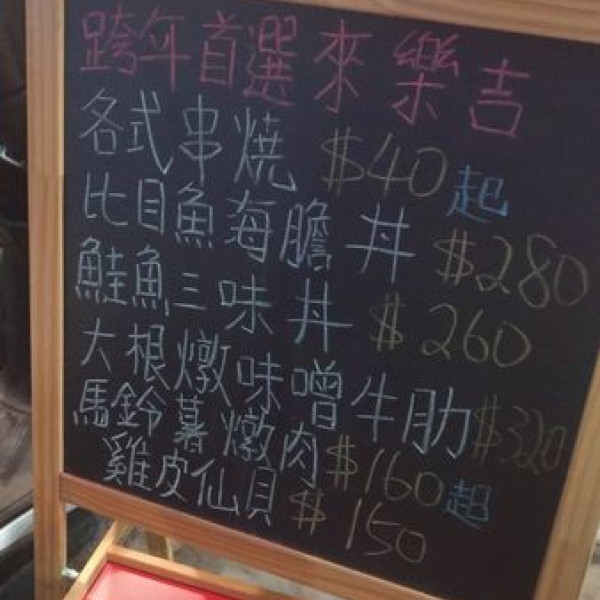 跨年首選來樂吉
各式串燒 $40起
比目魚海膽丼 $280
鮭魚三味丼 $260
大根燉味噌牛肋 $320
馬鈴暮燉肉 $160起
雞皮仙貝 $150